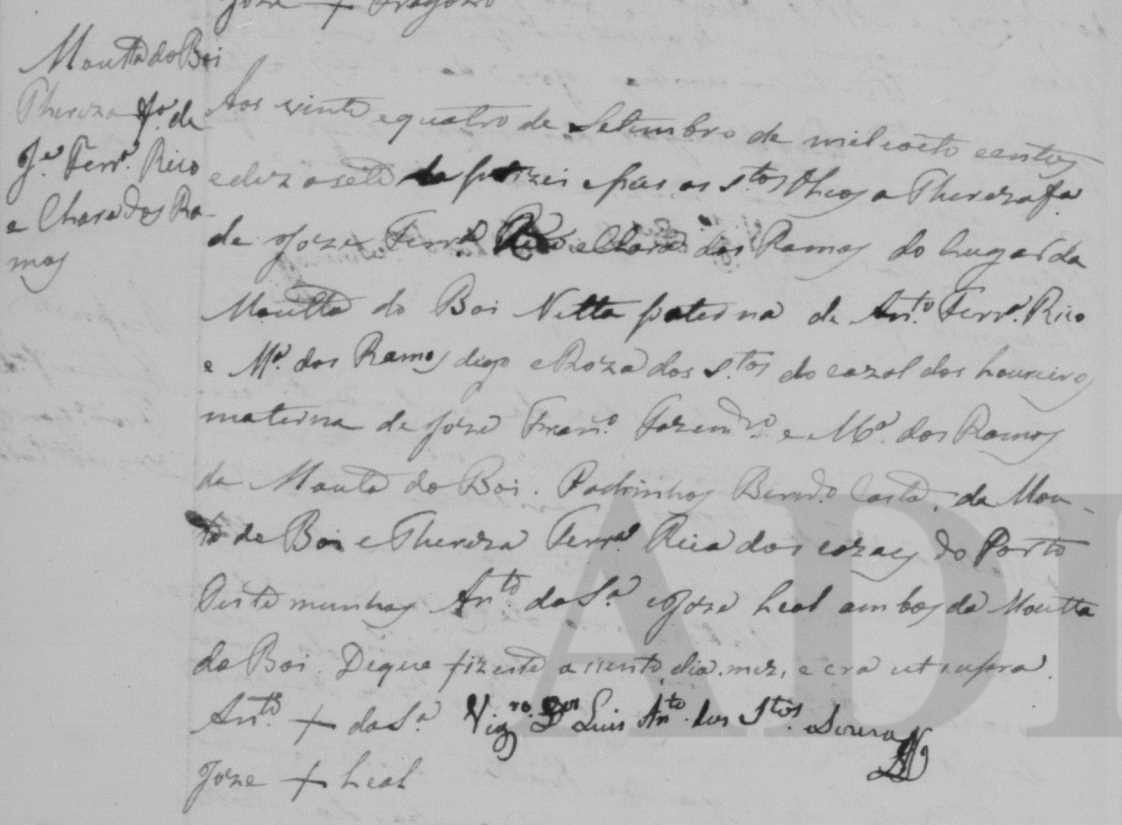 Joze + Fragozo
Moutta do Boi
Thereza fª. de
Je. Ferrª. Rico
e Clara dos Ra-
mos
Aos vinte e quatro de Setembro de mil e oito centos
e dez a sete baptizei e pus os S.tos Oleos a Thereza fª.
de Joze Ferrª. Rico e Clara dos Ramos do lugar da
Moutta do Boi Netta paterna de An.to Ferrª. Rico
e Mª. dos Ramos digo e Roza dos S.tos do cazal dos Loureiros
materna de Joze Fran.co e Mª. dos Ramos
da Mouta do Boi. Padrinhos Bernd.o Costa, da Mou-
ta do Boi e Thereza Ferrª. Rica dos cazaes do Porto
Testemunhas An.to da Sª. e Joze Leal ambos da Moutta
do Boi. De que fiz este assento, dia, mez, e era ut supra.
An.to + da Sª. Vigr.o Luis An.to dos S.tos Souza
Joze + Leal
AD